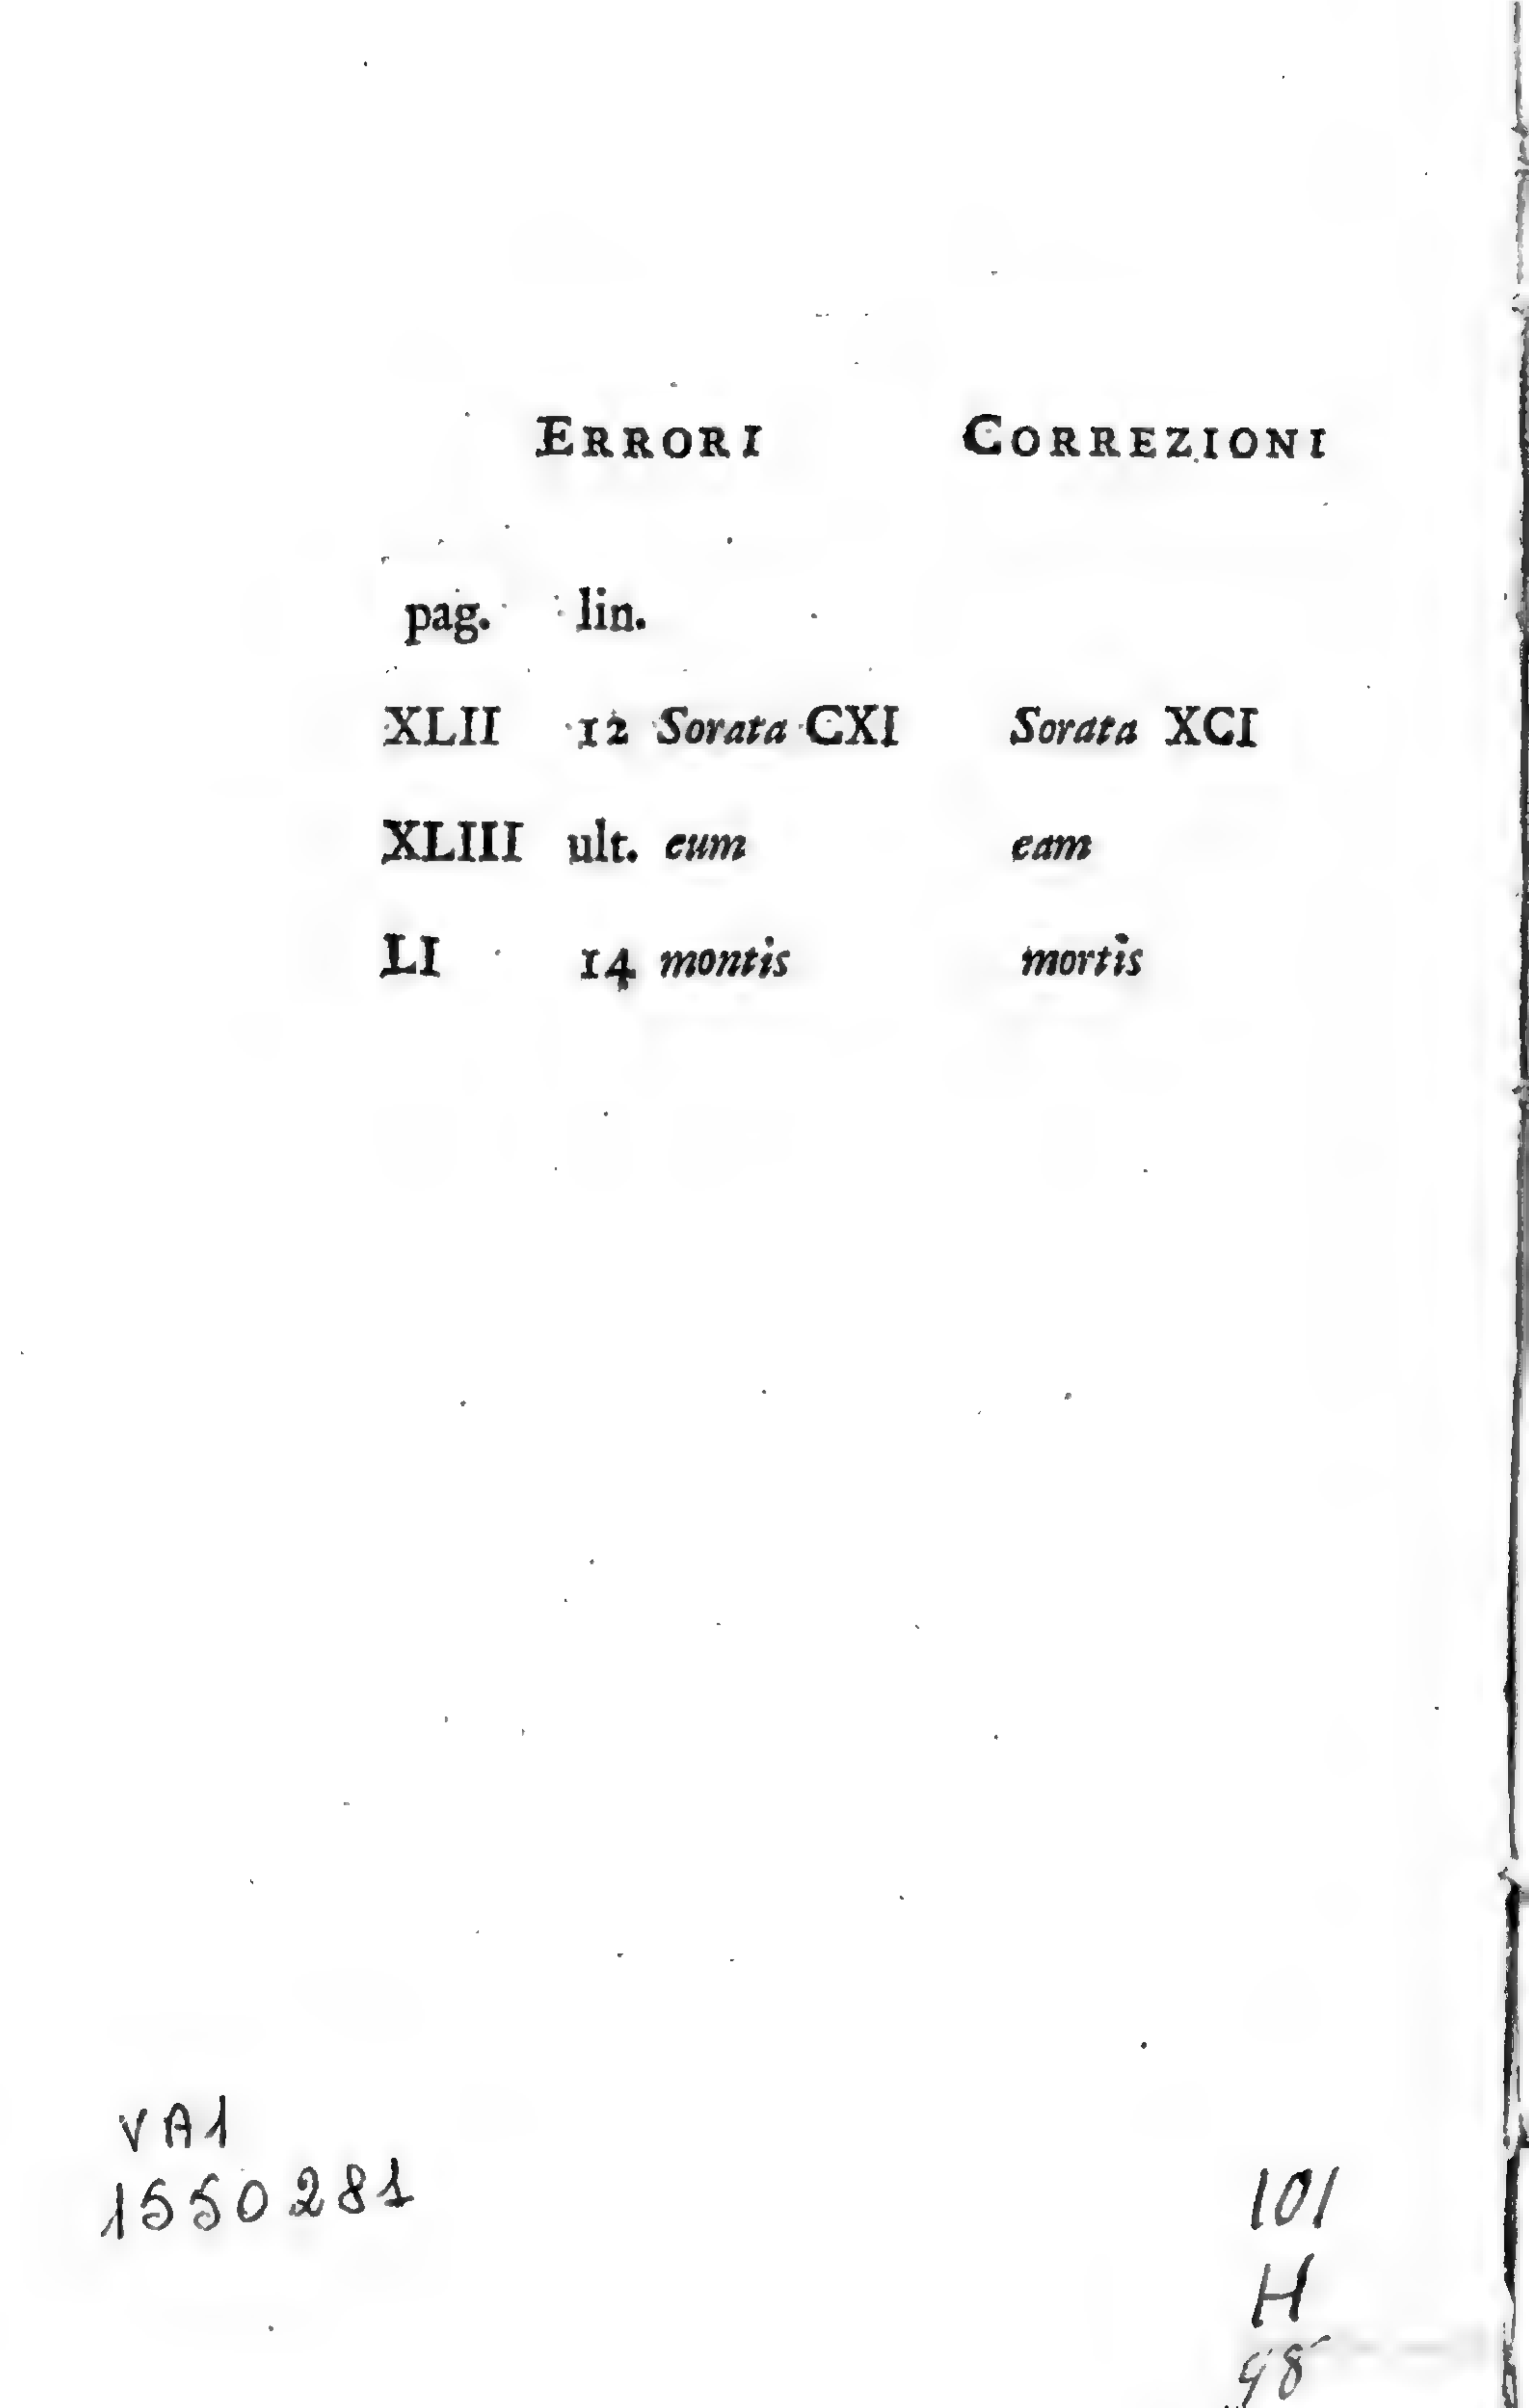 ERRORI CORREZIONI
pag. lin.
XLII 12 Sorata CXI Sorata XCI
XLIII ult. cum eam
LI 14 montis mortis
VA1
1550281
101
H
98